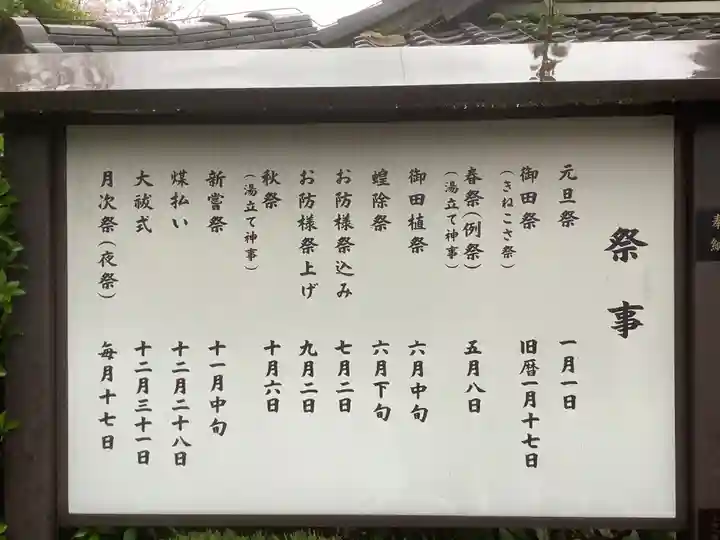 祭事
元旦祭 一月一日
御田祭 旧暦一月十七日
(きねこさ祭)
春祭(例祭) 五月八日
(湯立て神事)
御田植祭 六月中旬
蝗除祭 六月下旬
お防様祭込み 七月二日
お防様祭上げ 九月二日
秋祭 十月六日
(湯立て神事)
新嘗祭 十一月中旬
煤払い 十二月二十八日
大祓式 十二月三十一日
月次祭(夜祭) 毎月十七日
奉納